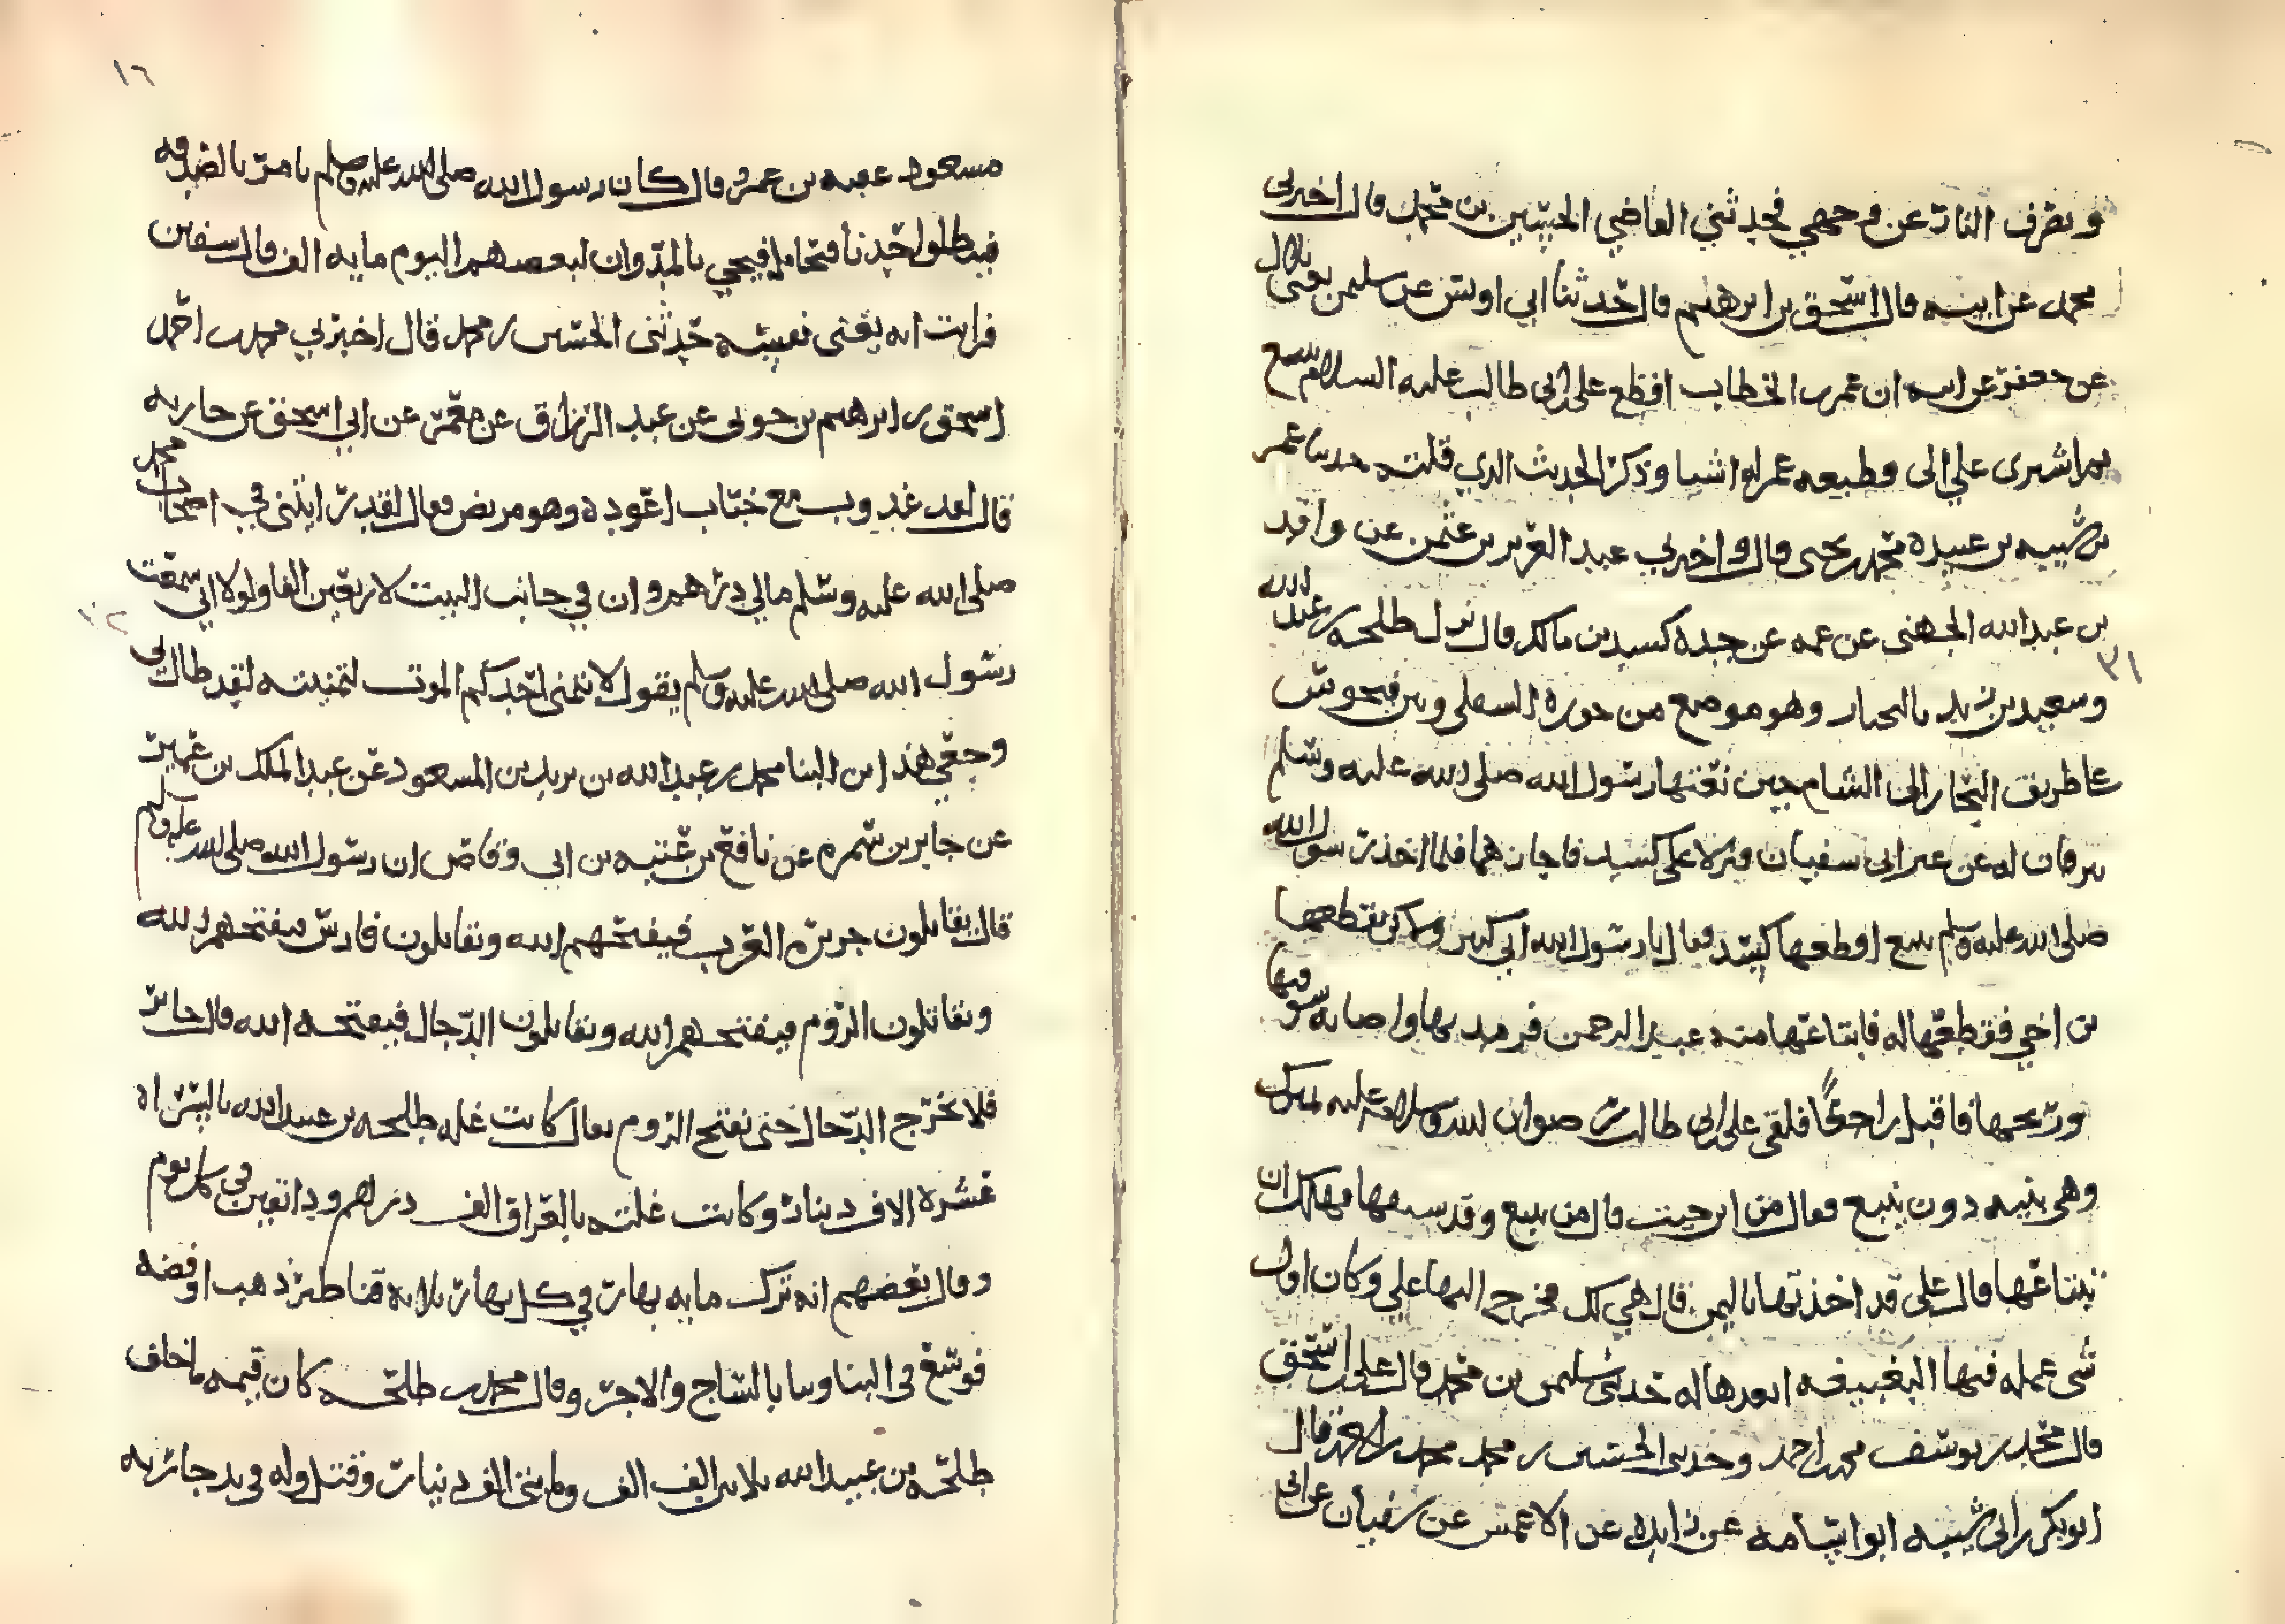 وتفرق الناس عن وجهي فحدثني القاضي الحسين بن محمد قال اخبرني
محمد عن ابيه قال اسحق بن ابرهيم قال حدثنا ابي اويس عن سليمن يعني بلال
عن جعفر عن ابيه ان عمر بن الخطاب اقطع علي بن ابي طالب عليه السلام ينبع
ثم اشترى علي الى قطيعه عمر اشيا وذكر الحديث الذي قلته حدثنا عمر
بن شبيه بن عبيدة محمد بن يحيى قال واخبرني عبد العزيز بن عثمن عن واقد
بن عبد الله الجهني عن عمه عن جده كسيد بن مالك قال نزل طلحه بن عبيد الله
وسعيد بن زيد بالنجبار وهو موضع من حوره السفلى وبين
على طريق التجار الى الشام حين بعثهما رسول الله صلى الله عليه وسلم
يترقبان له عن عير ابي سفيان فنزلا على كسيد فاجارهما فلما اخذ رسول الله
صلى الله عليه وسلم ينبع اقطعها كسيد فقال يا رسول الله اني كبير ولكن تقطعها
بن اخي فقطعها له فابتاعها منه عبد الرحمن فرمد بها واصابه سو فيها
وريحها فاقبل راجعا فلقي علي بن ابي طالب رضوان الله وسلامه عليه
وهي بنيه دون ينبع فقال من اين جيت قال من ينبع وقد سيفها فهل لك ان
تبتاعها قال علي قد اخذتها باليمن قال هي لك فخرج اليها علي وكان اول
شي عمله فيها البغيبغه له حدثني سليمن بن محمد قال علي بن اسحق
قال محمد بن يوسف محمد احمد وحدثني الحسين بن محمد محمد بن احمد قال
ابو بكر بن ابي شيبه ابو اسامه عن زايده عن الاعمش عن سفيان عن ابي
١٦
مسعود عقبه بن عمرو قال كان رسول الله صلى الله عليه وسلم يامر بالصدقه
فينطلق احدنا فيتحامل فيجي بالمد وان لبعضهم اليوم مايه الف قال سفين
فرايت انه يعني نفسه حدثني الحسين بن محمد قال اخبرني محمد بن احمد
اسحق بن ابرهيم بن جوتي عن عبد الرزاق عن معمر عن ابي اسحق عن حارثه
قال لقد غدوت مع خباب اعوده وهو مريض فقال لقد رايتني في اصحاب محمد
صلى الله عليه وسلم مالي درهم وان في جانب البيت لاربعين الفا ولولا اني سمعت
رسول الله صلى الله عليه وسلم يقول لا يتمنى احدكم الموت لتمنيته لقد طال بي
وجعي هذا بن البنا محمد بن عبد الله بن يزيد بن المسعود عن عبد الملك بن عمير
عن جابر بن سمره عن نافع بن عتبه بن ابي وقاص ان رسول الله صلى الله عليه وسلم
قال تقاتلون جزيره العرب فيفتحهم الله وتقاتلون فارس فيفتحهم الله
وتقاتلون الروم فيفتحهم الله وتقاتلون الدجال فيفتحه الله قال جابر
فلا يخرج الدجال حتى يفتح الروم يقال كانت غله طلحه بن عبيد الله بالسراه
عشره الاف دينار وكانت غلته بالعراق الف درهم ودانقين في كل يوم
وقال بعضهم انه ترك مايه بهار في كل بهار ثلاثه قناطير ذهب او فضه
فوسع في البنا وبنا بالساج والاجر وقال محمد بن طلحه كان قيمه ما خلف
طلحه بن عبيد الله ثلاثين الف الف ومايتي الف دينار وقتل وله في يد جاريه